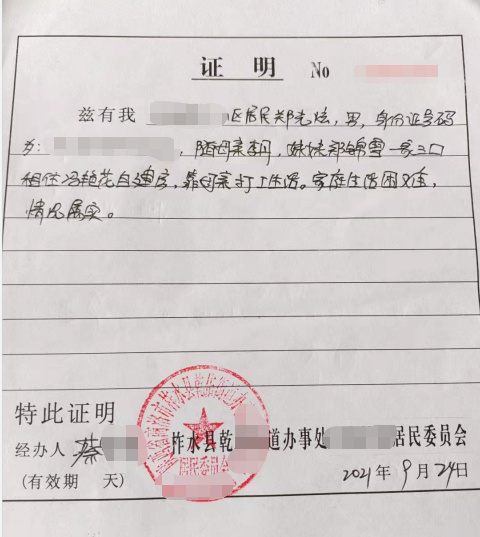 证 明 No
兹有我 区居民郑光炫，男，身份证号码
为： ，随母亲 ，妹妹郑锦雪一家三口
租住冯艳花自建房，靠母亲打工生活。家庭生活困难，
情况属实。
特此证明
经办人 蔡 柞水县乾 道办事处 居民委员会
(有效期 天) 2021年9月24日
居民委员会